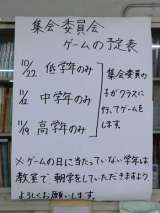 集会委員会
ゲームの予定表
10/22 低学年のみ
11/12 中学年のみ
11/19 高学年のみ
集会委員の
方がクラスに
行ってゲームを
します。
※ゲームの日に当たっていない学年は
教室で朝学をしていただきますよう、
よろしくお願いします。